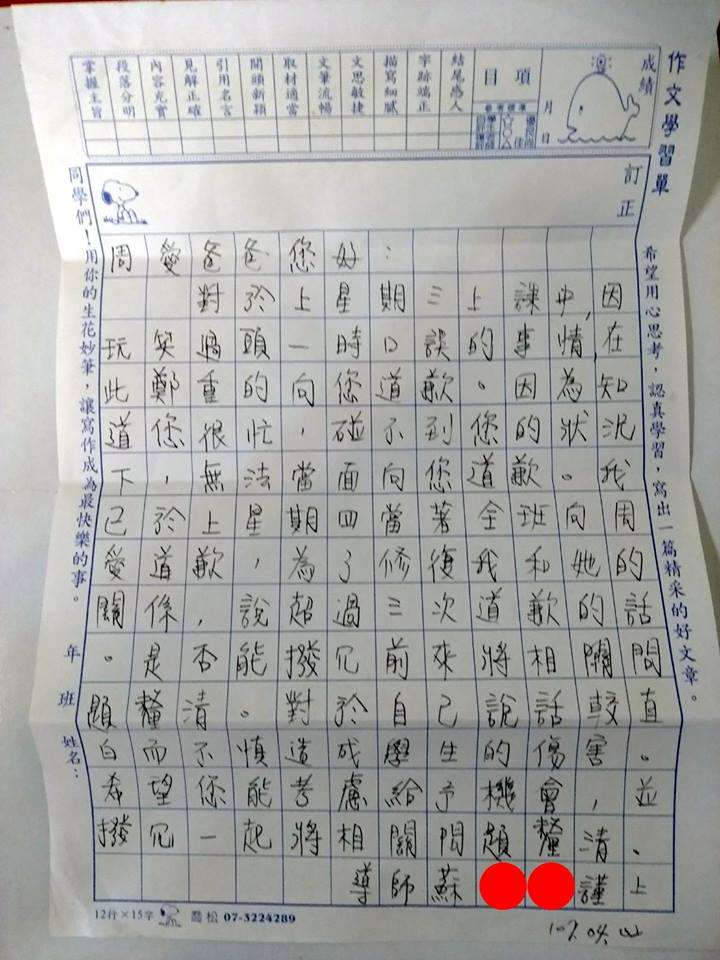 作文學習單
成績
月 日
項目
結尾感人
字跡端正
描寫細膩
文思敏捷
文筆流暢
取材適當
開頭新穎
引用名言
見解正確
內容充實
段落分明
掌握主旨
訂正
希望用心思考，認真學習，寫出一篇精采的好文章。
周愛爸爸您好：
對於上星期三上課中，因
玩笑過頭一時口誤的事情，在
此鄭重的向您道歉。因為知
道您很忙，碰不到您的狀況
下，無法當面向您道歉。我
已於上星期四當著全班向周
愛道歉，為了修復我和她的
關係，說超過三次道歉的話
。是否能撥冗前來將相關問
題釐清。對於自己說話較直
白而不慎造成學生的傷害。
希望您能考慮給予機會，並
撥冗一起將相關問題釐清。
導師蘇 謹上
107.04.
同學們！用你的生花妙筆，讓寫作成為最快樂的事。
年 班 姓名：
12行×15字 喬松 07-3224289